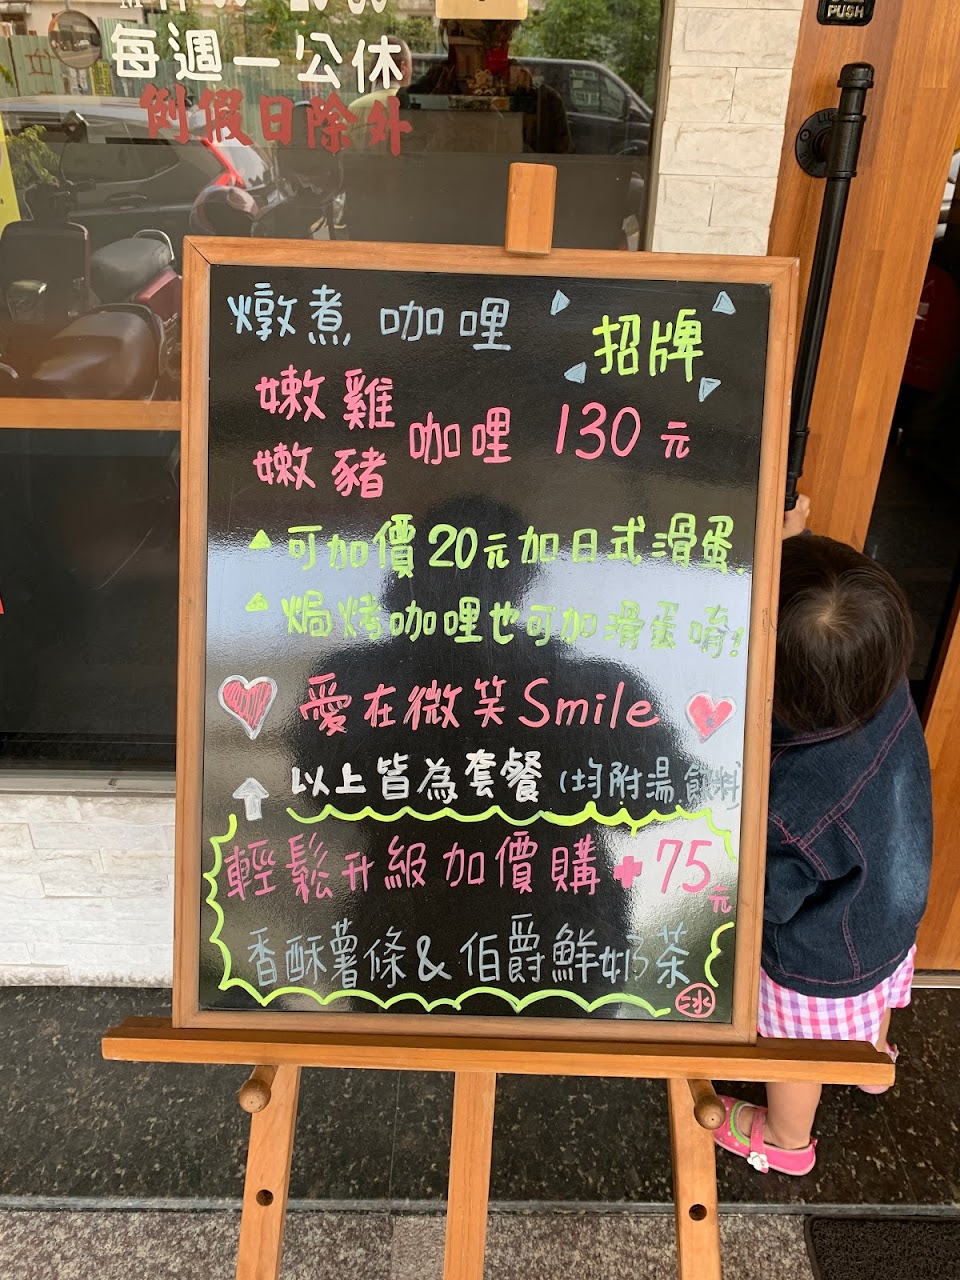 每週一公休
例假日除外
PUSH
燉煮 咖哩
招牌
嫩雞
嫩豬
咖哩 130元
可加價20元加日式滑蛋.
焗烤咖哩也可加滑蛋唷!
愛在微笑Smile
以上皆為套餐(均附湯.飲料)
輕鬆升級加價購+75元
香酥薯條&伯爵鮮奶茶
冰